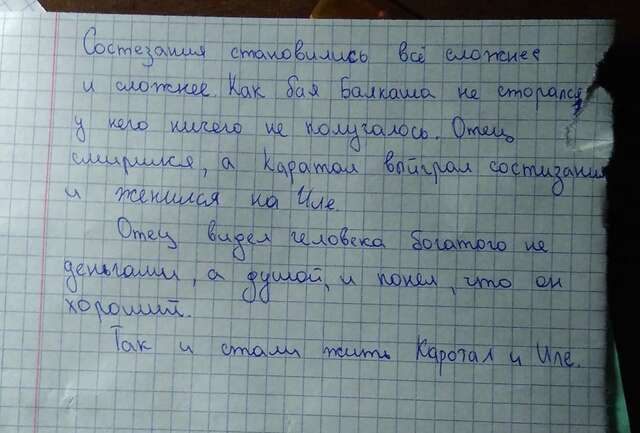 Состезания становились всё сложнее
и сложнее. Как бая Балкаша не сторался,
у него ничего не получалось. Отец
смирился, а Каратал выйграл состизания
и женился на Иле.
Отец видел человека богатого не
деньгами, а душой, и понел, что он
хороший.
Так и стали жить Каротал и Иле.